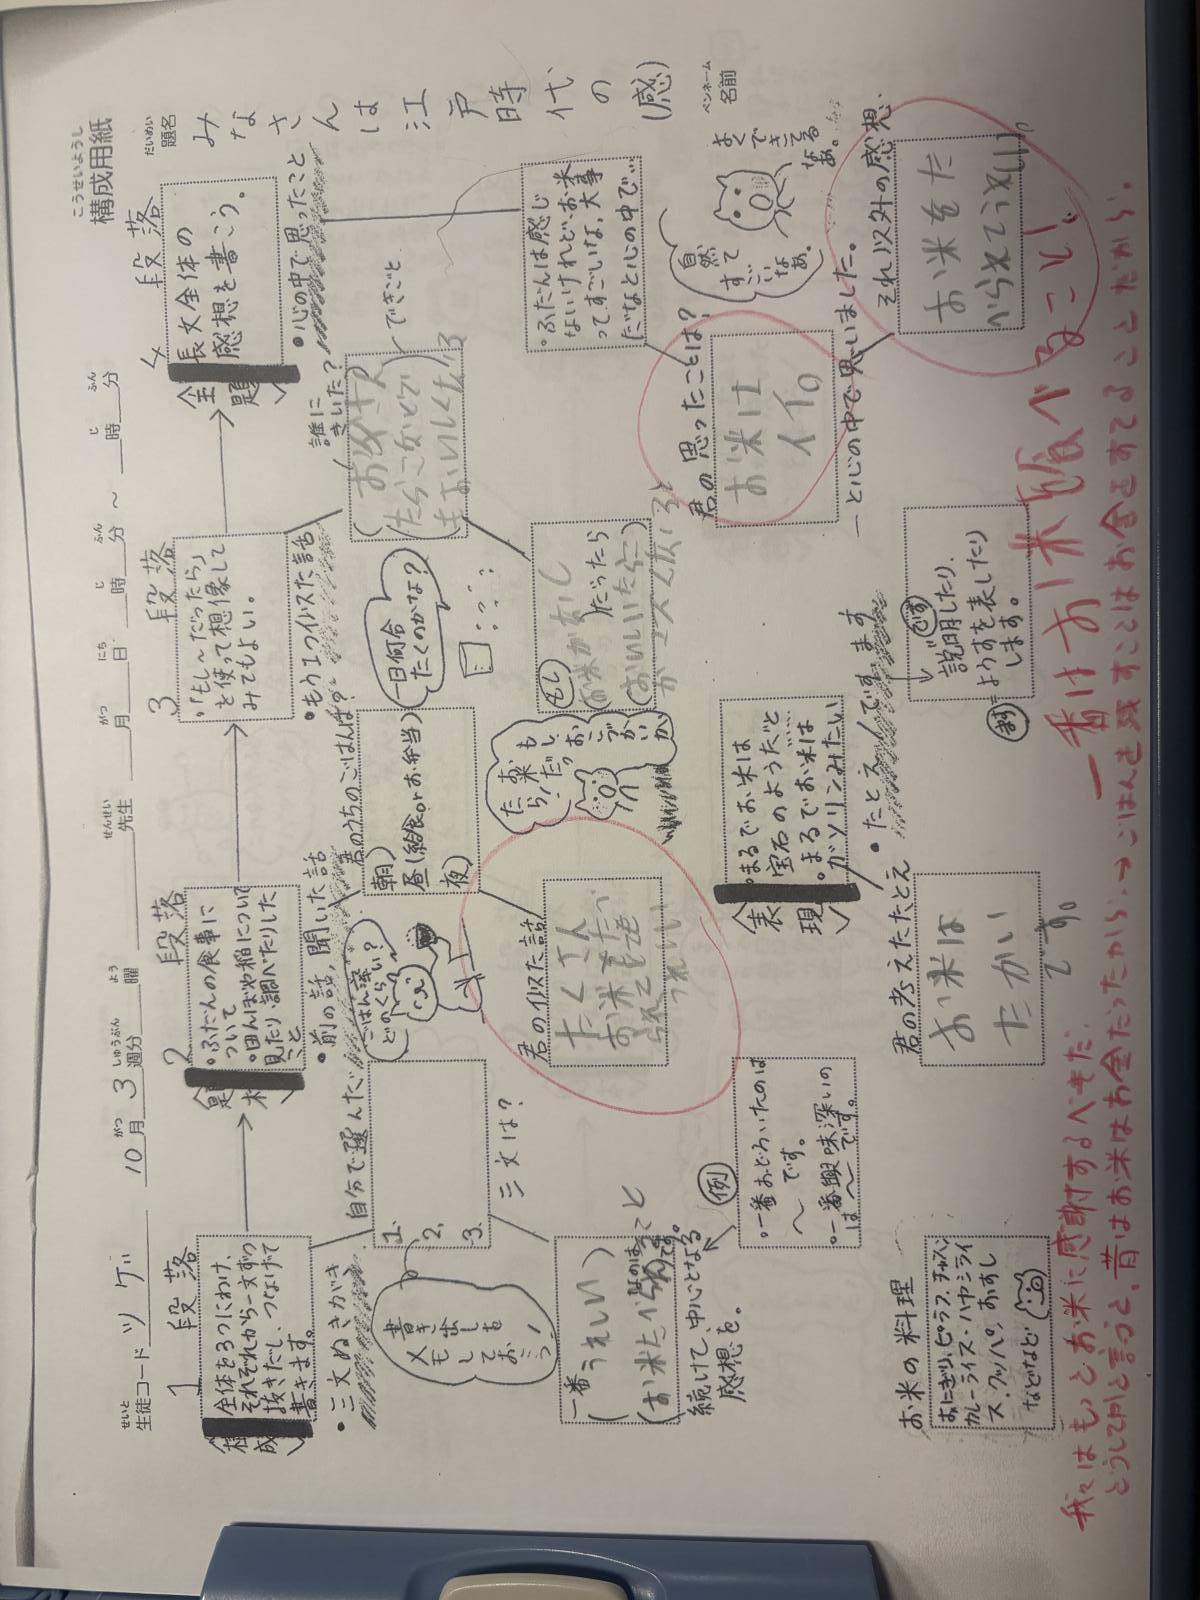 こうせいようし
構成用紙
だいめい
題名
みなさんは江戸時代の(感)
ペンネーム
名前
せいと
生徒コード ツゲジ
10月3週分 曜
せんせい
先生
月 日 時 分 ～ 時 分
1段落
〈構成〉
全体を3つにわけ、
それぞれから一文ずつ
抜きだし、つなげて
書きます。
・三文ぬきがき
自分で選んだ
三文は?
1.
2.
3.
書き出しを
メモ
して
おこっ!
一番
(うれしい)
(お米たべら
続けて、中心となる
感想を。
例
・一番おどろいたのは
～です。
・一番興味深いの
は～です。
お米の料理
おにぎり、ピラフ、チャーハン
カレーライス・ハヤシライ
ス・クッパ、おすし
などなど
2段落
〈題材〉
・ふだんの食事に
ついて
・田んぼや稲について
見たり、調べたりした
こと
・前の話、聞いた話
君のうちのごはんは?
朝)
昼(給食orお弁当)
夜)
ごはん茶
どのくらい?
君のイルスた話
たくさん
お米もたべ
られて
うれしい
〈表現〉
・まるでお米は
宝石のようだ。と
・まるでお米は
ガソリンみたい
・たとえ
君の考えたたとえ
お米は
たかい
です。
3段落
・「もし～だったら」
と使って想像して
みてもよい。
・もう1つイルスた話
誰に
きいた?
できごと
(お
一日何合
たくのかな?
もし
だったら
お米が
もし、
お米
だっ
たら!
おこづかいが
ですます
です
説明したり、
ようすを表したり
します。
4段落
〈全題〉
長文全体の
感想を書こう。
・心の中で思ったこと
・ふだんは感じ
ないけれど、お米
ってすごいな、大事
だなと心の中で…
君の思ったことは?
お米は
イイ。
―と心の中で思いました。
自然って
すごい
なぁ。
よくできてる
なぁ。
それ以外の感想
お米をた
べられてうれしい。
一番はお米を食べること!
我々はもっとお米に感謝するべきだ。
どうしてかと言うと、昔はお米はお金だったから。→ごはんを残すことはお金をすてることだから。